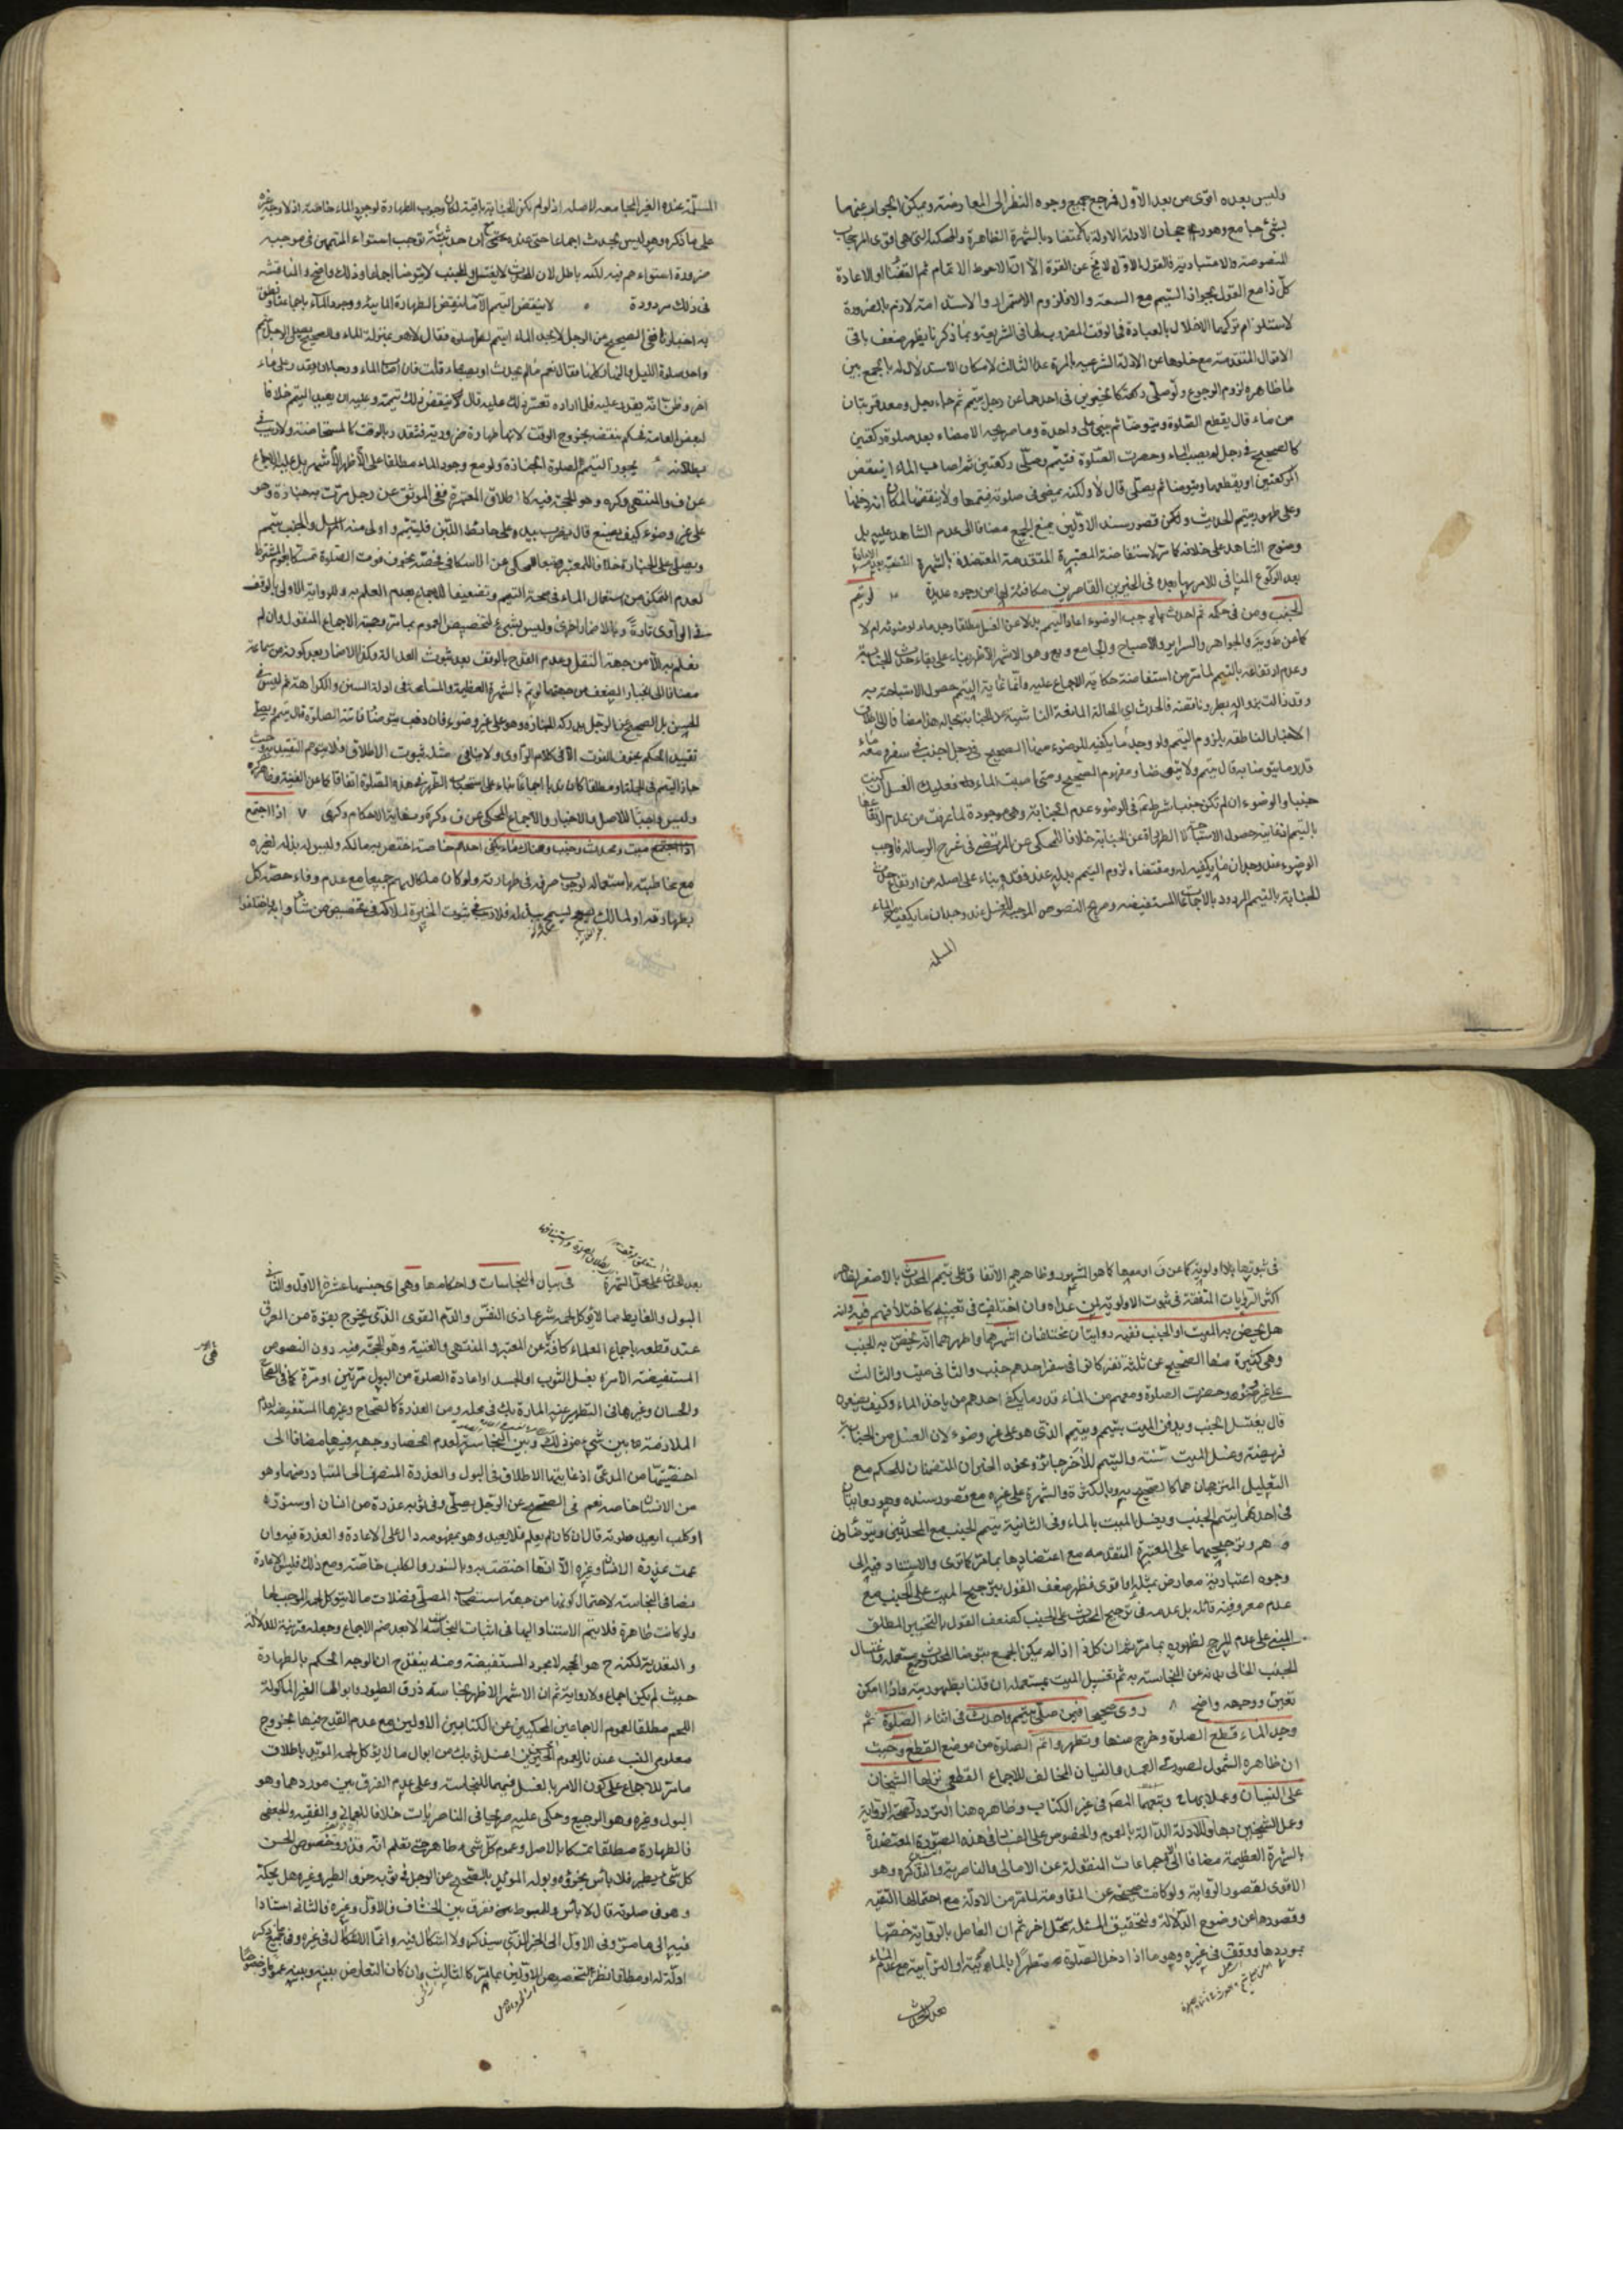 وليس بعده اقوى من بعد الاول فرجع جميع وجوه النظر الى المعارضة ويمكن الجواب عنها
بشيء جامع وهو رجحان الادلة الاولة بالاعتضاد بالشهرة الظاهرة والمحكية التي هي اقوى المرجحات
المنصوصة والاعتبارية فالقول الاول لا يخ عن القوة الا ان الاحوط الاتمام ثم القضاء او الاعادة
كل ذا مع القول بجواز التيمم مع السعة والا فلزوم الاستمرار والاستدامة لازم بالضرورة
لاستلزام تركهما الاخلال بالعبادة في الوقت المضروب لها في الشريعة وبما ذكرنا يظهر ضعف باقي
الاقوال المتقدمة مع خلوها عن الادلة الشرعية بالمرة عدا الثالث لامكان الاستدلال له بالجمع بين
ما ظاهره لزوم الرجوع ولو صلى ركعة كالخبرين في احدهما عن رجل تيمم ثم جاء رجل ومعه قربتان
من ماء قال يقطع الصلوة ويتوضا ثم يبني على واحدة وما صريحه الامضاء بعد صلوة ركعتين
كالصحيح في رجل لم يصب الماء وحضرت الصلوة فتيمم وصلى ركعتين ثم اصاب الماء اينقض
الركعتين او يقطعهما ويتوضا ثم يصلي قال لا ولكنه يمضي في صلوته فيتمها ولا ينقضها لمكان انه دخلها
وعلى طهور بتيمم الحديث ولكن قصور سند الاولين يمنع الجمع مضافا الى عدم الشاهد عليه بل
وضوح الشاهد على خلافه كا من الاستفاضة المعتبرة المتقدمة المعتضدة بالشهرة
بعد الركوع المنافي للامر بها بعده في الخبرين القاصرين مكافئة لها من وجوه عديدة لو تيمم
الجنب ومن في حكمه ثم احدث ما يوجب الوضوء اعاد التيمم بدلا عن الغسل مطلقا وجد ماء لوضوئه ام لا
كما عن ط ويه والجواهر والسراير والاصباح والجامع ويع وهو الاشهر الاظهر بناء على بقاء حدث الجنابة
وعدم ارتفاعه بالتيمم لما مر من استفاضة حكاية الاجماع عليه وانما غاية التيمم حصول الاستباحة به
وقد زالت بزواله بطرو ناقضه فالحدث اي الحالة المانعة الناشية عن الجنابة بحاله هذا مضافا الى اطلاق
الاخبار الناطقة بلزوم التيمم ولو وجد ما يكفيه للوضوء منها الصحيح في رجل اجنب في سفر ومعه ماء
قدر ما يتوضا به قال يتيمم ولا يتوضا ومفهوم الصحيح ومتى اصبت الماء فعليك الغسل ان كنت
جنبا والوضوء ان لم تكن جنبا شرط ثم في الوضوء عدم الجنابة وهي موجودة لما عرفت من عدم ارتفاعها
بالتيمم غايته حصول الاستباحة لا الطهارة عن الجنابة خلافا للمحكي عن المرتضى في شرح الرسالة فاوجب
الوضوء عند وجدان ما يكفيه له ومقتضاه لزوم التيمم بدله عند فقده بناء على اصله من ارتفاع حدث
الجنابة بالتيمم المردود بالاجماعات المستفيضة وصريح النصوص الموجبة للغسل عند وجدان ما يكفيه من الماء
المسلمة
المسلمة عنده الغير المجامعة لاصله اذ لو لم تكن الجنابة باقية لكان وجوب الطهارة لوجود الماء خاصة اذ لا وجه غيره
على ما ذكره وهو ليس بحدث اجماعا حتى عنده مع ان حدثيته توجب استواء المتيممين في موجبه
ضرورة استوائهم فيه لكنه باطل لان المحدث لا يغتسل والجنب لا يتوضا اجماعا وذلك واضح والمناقشة
في ذلك مردودة لا ينقض التيمم الا ما ينقض الطهارة المائية ووجود الماء باجماعنا ونطق
به اخبارنا ففي الصحيح عن الرجل لا يجد الماء ايتيمم لكل صلوة فقال لا هو بمنزلة الماء والصحيح يصلي الرجل بتيمم
واحد صلوة الليل والنهار كلها فقال نعم ما لم يحدث او يصب ماء قلت فان اصاب الماء ورجا ان يقدر على ماء
اخر وظن انه يقدر عليه فلما اراده تعسر ذلك عليه قال ينقض ذلك تيممه وعليه ان يعيد التيمم خلافا
لبعض العامة فحكم بنقضه بخروج الوقت لانها طهارة ضرورية فتتقدر بالوقت كالمستحاضة ولا ريب في
بطلانه يجوز التيمم لصلوة الجنازة ولو مع وجود الماء مطلقا على الاظهر الاشهر بل عليه الاجماع
عن ف والمنتهى وكره وهو الحجة فيه كاطلاق المعتبرة ففي الموثق عن رجل مرت به جنازة وهو
على غير وضوء كيف يصنع قال يضرب بيده على حائط اللبن فليتيمم واولى منه المرسل والجنب يتيمم
ويصلي على الجنازة خلافا للمعتبر تبعا للمحكي عن الاسكافي فخصه بخوف فوت الصلوة تمسكا بعموم اشتراط
لعدم التمكن من استعمال الماء في صحة التيمم وتضعيفا للاجماع بعدم العلم به وللرواية الاولى بالوقف
في الراوي تارة وبالاضمار اخرى وليس بشيء لتخصيص العموم بما مر وحجية الاجماع المنقول وان لم
نعلم به الا من جهة النقل وعدم القدح بالوقف بعد ثبوت العدالة وكذا الاضمار بعد كونه من سماعة
مضافا الى انجبار الضعف من جهتهما لو تم بالشهرة العظيمة والمسامحة في ادلة السنن والكراهة نعم ليس في
الحسن بل الصحيح عن الرجل يدركه الجنازة وهو على غير وضوء فان ذهب يتوضا فاتته الصلوة قال يتيمم ويصلي
تقييد الحكم بخوف الفوت الا في كلام الراوي ولا ينافي مثله ثبوت الاطلاق فلا يتوهم التقييد به وحيث
جاز التيمم في الجملة او مطلقا كان ندبا اجماعا بناء على استحباب الطهر في هذه الصلوة اتفاقا كما عن الغنية وظاهر كره
وليس واجبا للاصل والاخبار والاجماع المحكي عن ف وكره ونهاية الاحكام وكرى ٧ اذا اجتمع
ميت ومحدث وجنب وهناك ماء يكفي احدهم خاصة اختص به مالكه وليس له بذله لغيره
مع مخاطبته باستعماله لوجوب صرفه في طهارته ولو كان ملكا لهم جميعا مع عدم وفاء حصة كل
بطهارته او لمالك يسمح ببذله فلا ريب في ثبوت الخيرة لملاكه في تخصيص من شاؤا به واختلفوا
في ثبوتها بلا اولوية كما عن ف او معها كما هو المشهور وظاهرهم الاتفاق على تيمم المحدث بالاصغر لظاهر
اكثر الروايات المتفقة في ثبوت الاولوية لمن عداه وان اختلفت في تعيينه كاختلافهم فيه وانه
هل يخص به الميت او الجنب ففيه روايتان مختلفتان اشهرهما واظهرهما انه يخص به الجنب
وهي كثيرة منها الصحيح عن ثلثة نفر كانوا في سفر احدهم جنب والثاني ميت والثالث
على غير وضوء وحضرت الصلوة ومعهم من الماء قدر ما يكفي احدهم من ياخذ الماء وكيف يصنعون
قال يغتسل الجنب ويدفن الميت بتيمم ويتيمم الذي هو على غير وضوء لان الغسل من الجنابة
فريضة وغسل الميت سنة والتيمم للآخر جائز ونحوه الخبران المتضمنان للحكم مع
التعليل المترجحان هما كالصحيح به وبالكثرة والشهرة على غيره مع قصور سنده وهو روايتان
في احدهما يتيمم الجنب ويغسل الميت بالماء وفي الثانية يتيمم الجنب مع المحدثين ويتوضاون
هم وترجيحهما على المعتبرة المتقدمة مع اعتضادها بما مر كما ترى والاستناد فيه الى
وجوه اعتبارية معارض بمثلها واقوى فظهر ضعف القول بترجيح الميت على الجنب مع
عدم معروفية قائله بل عدمه في ترجيح المحدث على الجنب كضعف القول بالتخيير المطلق
المبني على عدم المرجح لظهوره بما مر ثم ان كل ذا اذا لم يمكن الجمع بتوضا المحدث وجمع مستعمله واغتسال
الجنب الخالي بدنه عن النجاسة به ثم تغسيل الميت بمستعمله ان قلنا بطهوريته واذا امكن
تعين ووجهه واضح ٨ روى صحيحا فيمن صلى بتيمم واحدث في اثناء الصلوة ثم
وجد الماء قطع الصلوة وخرج منها وتطهر واتم الصلوة من موضع القطع وحيث
ان ظاهره الشمول لصورتي العمد والنسيان المخالف للاجماع القطعي نزلها الشيخان
على النسيان وعملا بها وتبعهما المصر في غير الكتاب وظاهره هنا التردد لصحة الرواية
وعمل الشيخين بها والادلة الدالة بالعموم والخصوص على الفساد في هذه الصورة المعتضدة
بالشهرة العظيمة مضافا الى الاجماعات المنقولة عن الامالي والناصرية والتذكره وهو
الاقوى لقصور الرواية ولو كانت صحيحة عن المقاومة لما مر من الادلة مع احتمالها التقية
وقصورها عن وضوح الدلالة ولتحقيق المسئلة محل اخر ثم ان العامل بالرواية خصها
بموردها ووقف في غيره وهو ما اذا دخل الصلوة متطهرا بالمائية او الترابية مع عدم الماء
بعد الحدث
بعد الحدث عملا بمحل الشهرة في بيان النجاسات واحكامها وهي اي جنسها عشرة الاول والثاني
البول والغايط مما لا يؤكل لحمه شرعا ذي النفس والدم القوي الذي يخرج بقوة من العرق
عند قطعه باجماع العلماء كافة كما عن المعتبر والمنتهى والغنية وهو الحجة فيه دون النصوص
المستفيضة الامرة بغسل الثوب او الجسد او اعادة الصلوة من البول مرتين او مرة كما في الصحاح
والحسان وغيرها في التطهر عنه المارة بك في محله ومن العذرة كالصحاح وغيرها المستفيضة لعدم
الملازمة ما بين شيء من ذلك وبين النجاسة لعدم انحصار وجهه فيها مضافا الى
اخصيتها من المدعى اذ غايتها الاطلاق في البول والعذرة المنصرف الى المتبادر منهما وهو
من الانسان خاصة نعم في الصحيح عن الرجل يصلي وفي ثوبه عذرة من انسان او سنور
او كلب ايعيد صلوته قال ان كان لم يعلم فلا يعيد وهو بمفهومه دال على الاعادة والعذرة فيه وان
عمت عذرة الانسان وغيره الا انها اختصت به وبالسنور والكلب خاصة ومع ذلك فليس الاعادة
نصا في النجاسة لاحتمال كونها من جهة استصحاب المصلي فضلات ما لا يؤكل لحمه الموجب لها
ولو كانت طاهرة فلا يتم الاستناد اليها في اثبات النجاسة الا بعد ضم الاجماع وجعله قرينة للدلالة
والتعدية لكنه ح هو الحجة لا مجرد المستفيضة ومنه ينقدح ان الوجه الحكم بالطهارة
حيث لم يكن اجماع ولا رواية ثم ان الاشهر الاظهر نجاسة ذرق الطيور وابوالها الغير الماكولة
اللحم مطلقا لعموم الاجماعين المحكيين عن الكتابين الاولين مع عدم القدح فيها بخروج
معلومي النسب عندنا ولعموم الخبرين اغسل ثوبك من ابوال ما لا يؤكل لحمه المؤيد باطلاق
ما مر للاجماع على كون الامر بالغسل فيهما للنجاسة وعلى عدم الفرق بين موردهما وهو
البول وغيره وهو الرجيع وحكى عليه صريحا في الناصريات خلافا للعماني والفقيه والجعفي
فالطهارة مطلقا تمسكا بالاصل وعموم كل شيء طاهر حتى تعلم انه قذر وخصوص الحسن
كل شيء يطير فلا باس بخرؤه وبوله المؤيد بالصحيح عن الرجل في ثوبه خرء الطير وغيره هل يحكه
وهو في صلوته قال لا باس وللمبسوط ففرق بين الخشاف فالاول وغيره فالثاني استنادا
فيه الى ما مر وفي الاول الى الخبر الذي سيذكر ولا اشكال فيه وانما الاشكال في غيره
ادلة له او مطلقا نظرا لتخصيص الاولين بما مر كالثالث وان كان التعارض بينه وبينه عموما وخصوصا